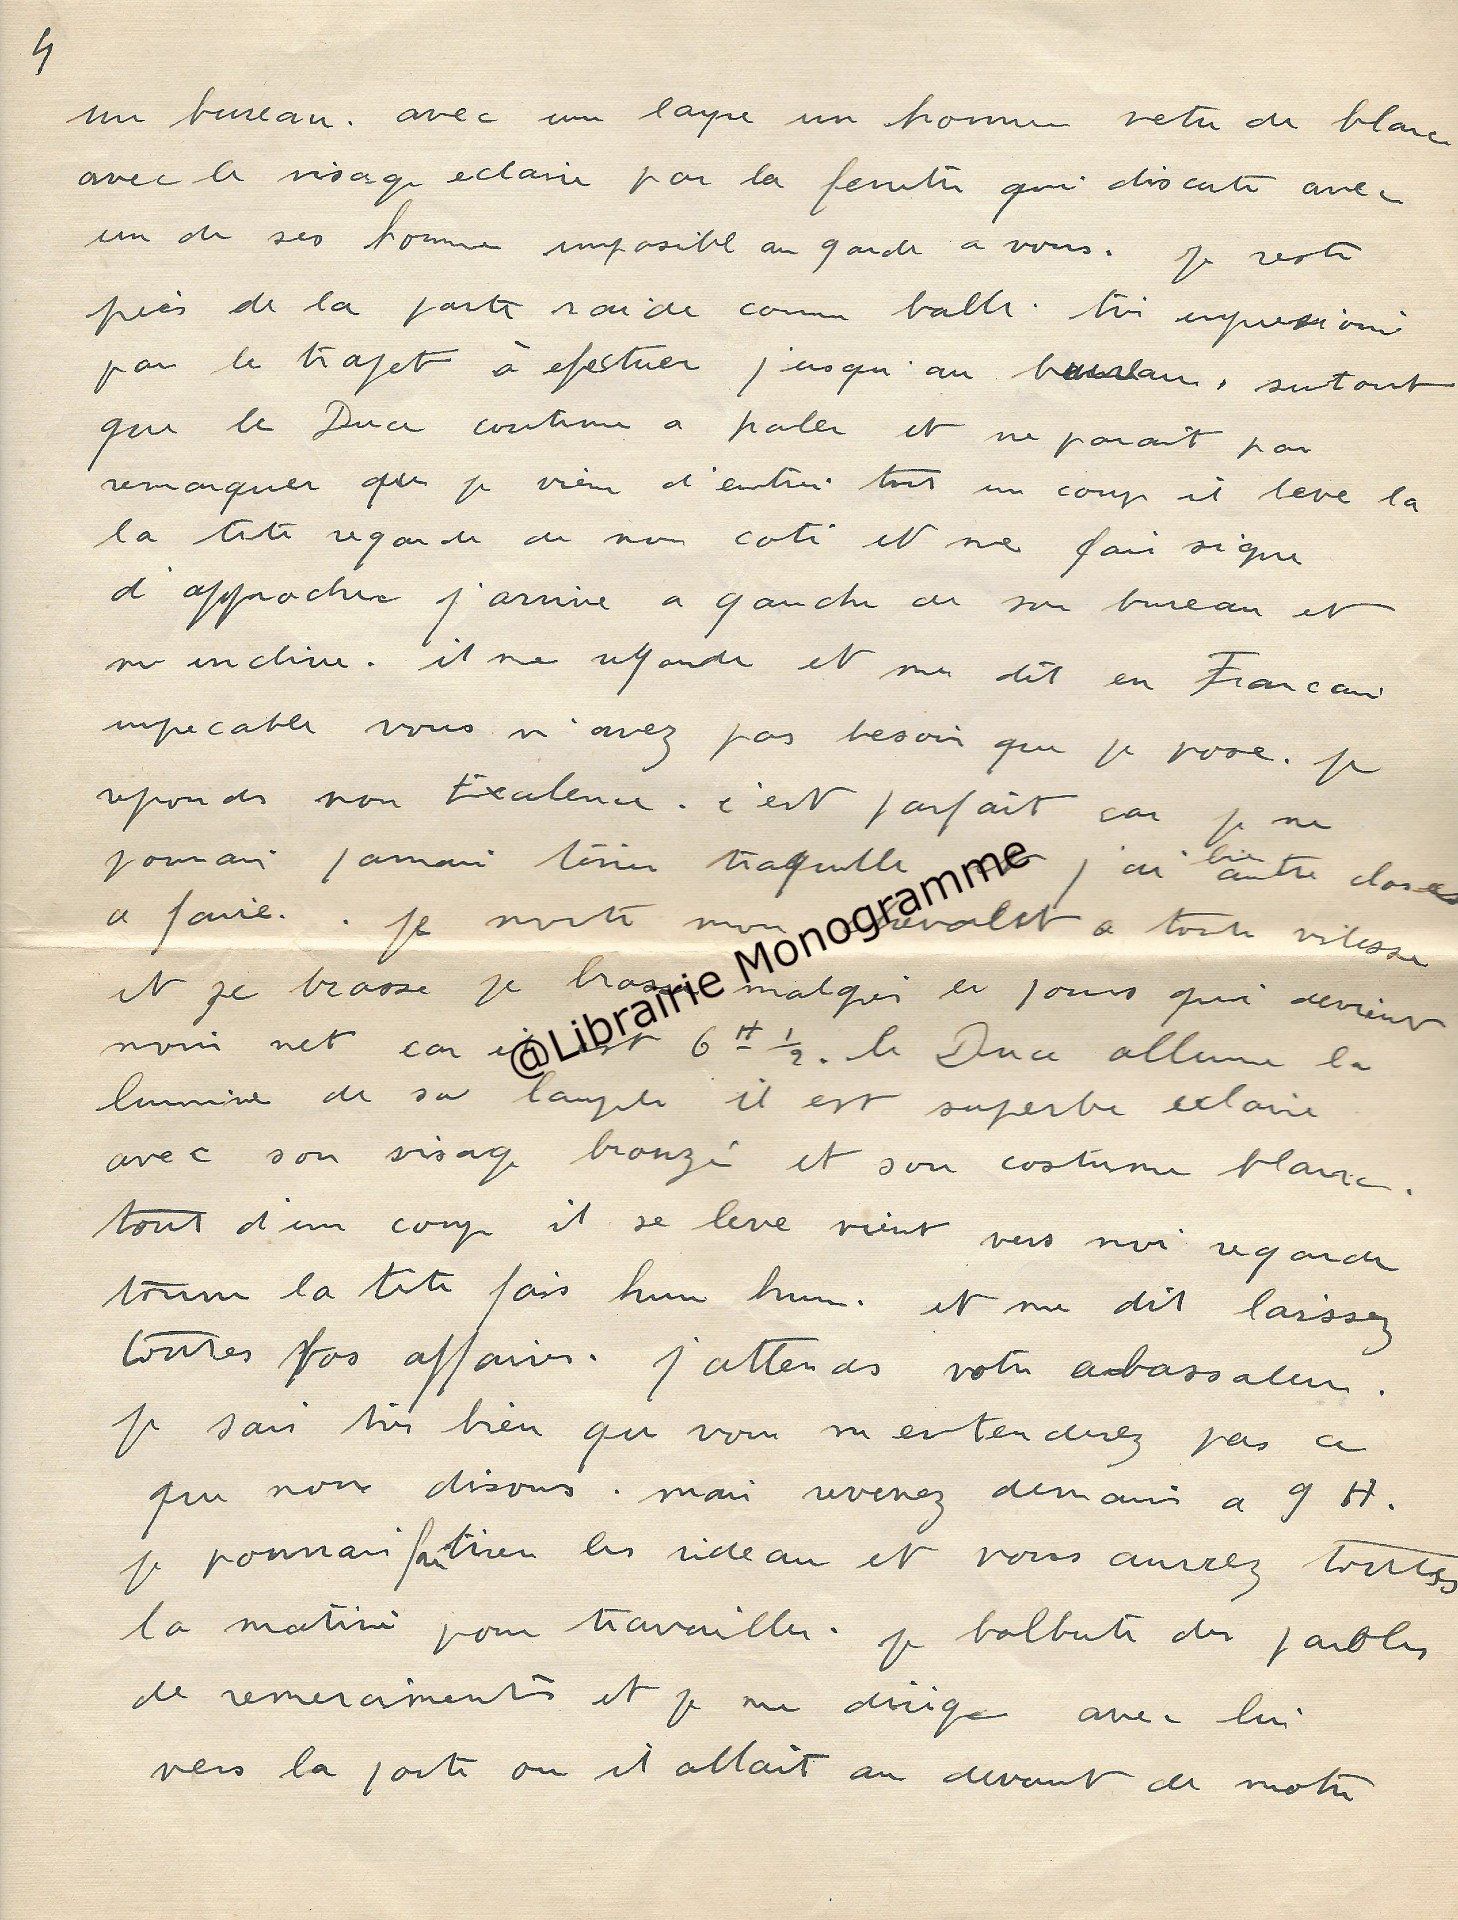 4
un bureau. avec une lampe un homme vetu de blanc
avec le visage eclairé par la fenetre qui discute avec
un de ses hommes imposible au garde a vous. je reste
près de la porte raide comme balle. très impressionné
par le trajet à efectuer jusqu'au bureau, surtout
que le Duce continue a parler et ne parait pas
remarquer que je viens d'entrer tout un coup il leve la
la tete regarde de mon coté et me fais signe
d'approcher j'arrive a gauche de son bureau et
m'incline. il me regarde et me dit en Francais
impecable vous n'avez pas besoin que je pose. je
reponds non Excelence. c'est parfait car je ne
pourrais jamais tenir traquille et j'ai bien autre choses
a faire. . je monte mon chevalet a toute vitesse
et je brosse je brosse malgres le jours qui devient
moin net car il est 6 H 1/2. le Duce allume la
lumiere de sa lampe il est superbe eclairé
avec son visage bronzé et son costume blanc.
tout d'un coup il se leve vient vers moi regarde
tourne la tete fais hum hum. et me dit laissez
toutes vos affaires. j'attends votre abassadeur.
je sais très bien que vous n'entenderez pas ce
que nous disons. mais revenez demain a 9 H.
je pourrais faire tirer les rideau et vous aurrez toutes
la matiné pour travailler. je balbute des paroles
de remerciments et je me dirige avec lui
vers la porte ou il allait au devant de notre
@Librairie Monogramme